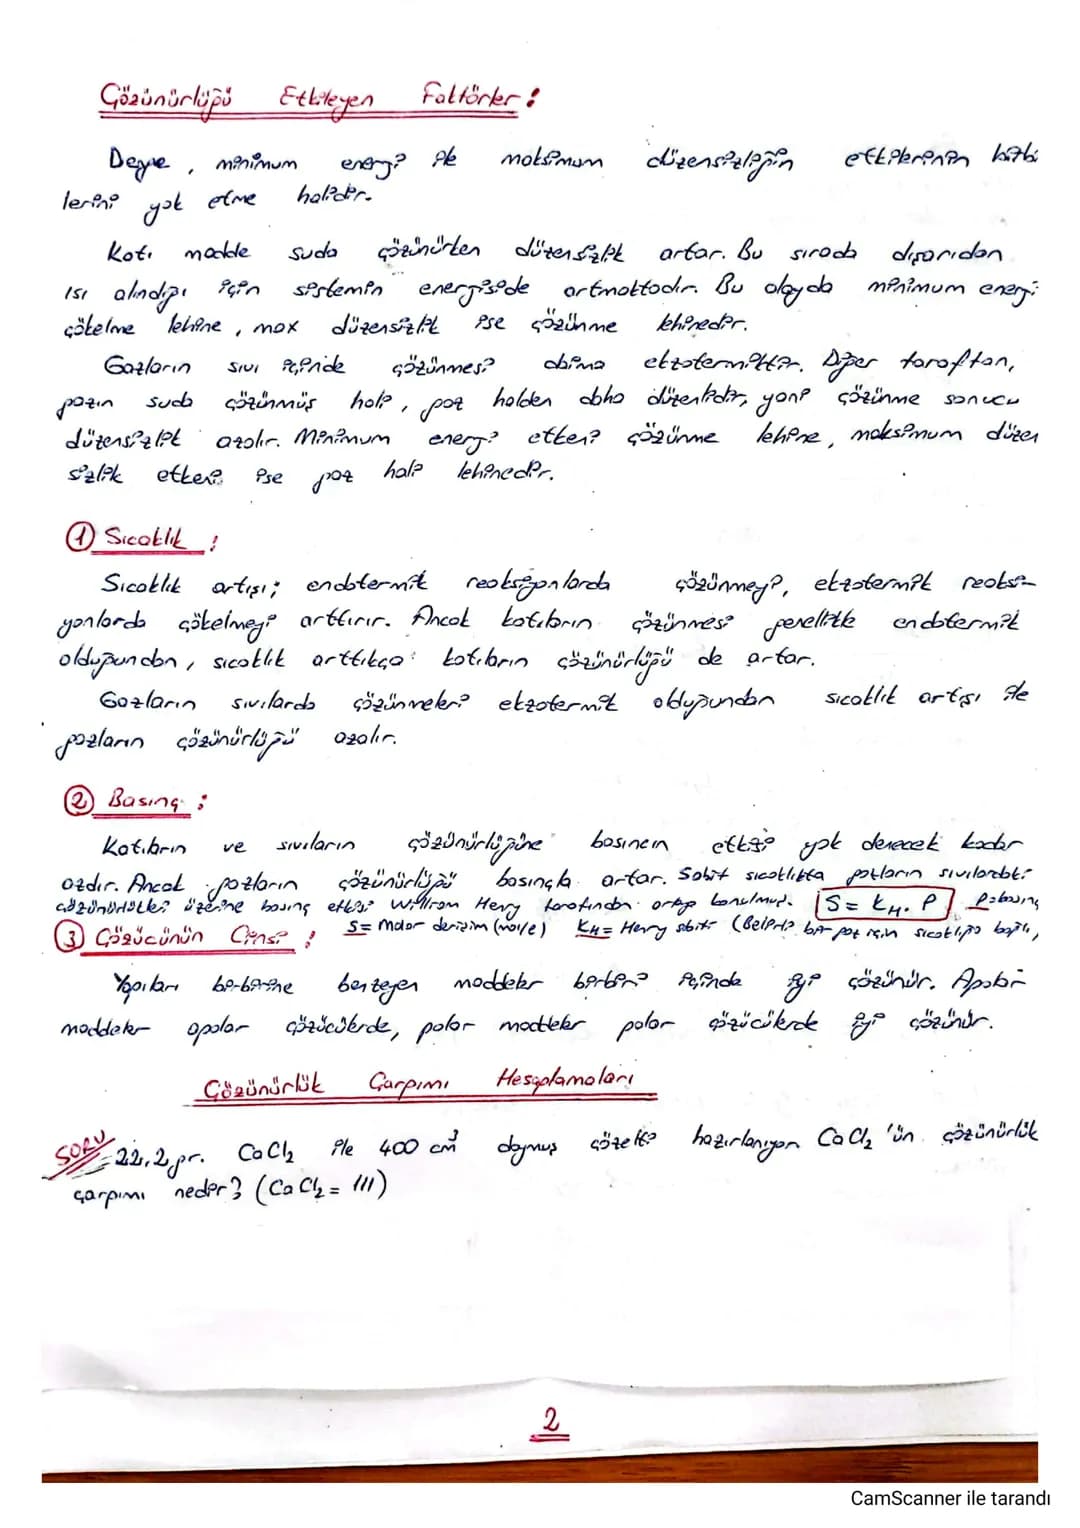 Çözünürlüğü Etkileyen Faktörler:
Denge, minimum enerji ile maksimum düzensizliğin etkilerinin birbir
lerini yok etme halidir.
Katı madde suda çözünürken düzensizlik artar. Bu sırada dışarıdan
ısı alındığı için sistemin enerjiside artmaktadır. Bu olayda minimum enerji
çökelme lehine, max düzensizlik ise çözünme lehinedir.
Gazların sıvı içinde çözünmesi daima ekzotermiktir. Diğer taraftan,
gazın suda çözünmüş hali, gaz halden daha düzenlidir, yani çözünme sonucu
düzensizlik azalır. Minimum enerji etkeni çözünme lehine, maksimum düzen
sizlik etkeni ise gaz hali lehinedir.
① Sıcaklık :
Sıcaklık artışı; endotermik reaksiyonlarda çözünmeyi, ekzotermik reaksi-
yonlarda çökelmeyi arttırır. Ancak katıların çözünmesi genellikle endotermik
olduğundan, sıcaklık arttıkça katıların çözünürlüğü de artar.
Gazların sıvılarda çözünmeleri ekzotermik olduğundan sıcaklık artışı ile
gazların çözünürlüğü azalır.
② Basınç :
Katıların ve sıvıların çözünürlüğüne basıncın etkisi yok denecek kadar
azdır. Ancak gazların çözünürlüğü basınçla artar. Sabit sıcaklıkta gazların sıvılardaki
çözünürlükleri üzerine basınç etkisi William Henry tarafından ortaya konulmuş. S = KH. P P=basınç
③ Çözücünün Cinsi : S= Molar derişim (mol/l) KH= Henry sbiti (Belirli bir gaz için sıcaklığa bağlı,
Yapıları birbirine benzeyen maddeler birbiri içinde iyi çözünür. Apolar
maddeler apolar çözücülerde, polar maddeler polar çözücülerde iyi çözünür.
Çözünürlük Çarpımı Hesaplamaları
SORU 22,2 gr. CaCl₂ ile 400 cm³ doymuş çözelti hazırlanıyor CaCl₂ 'ün çözünürlük
çarpımı nedir? (CaCl₂ = 111)
2
CamScanner ile tarandı